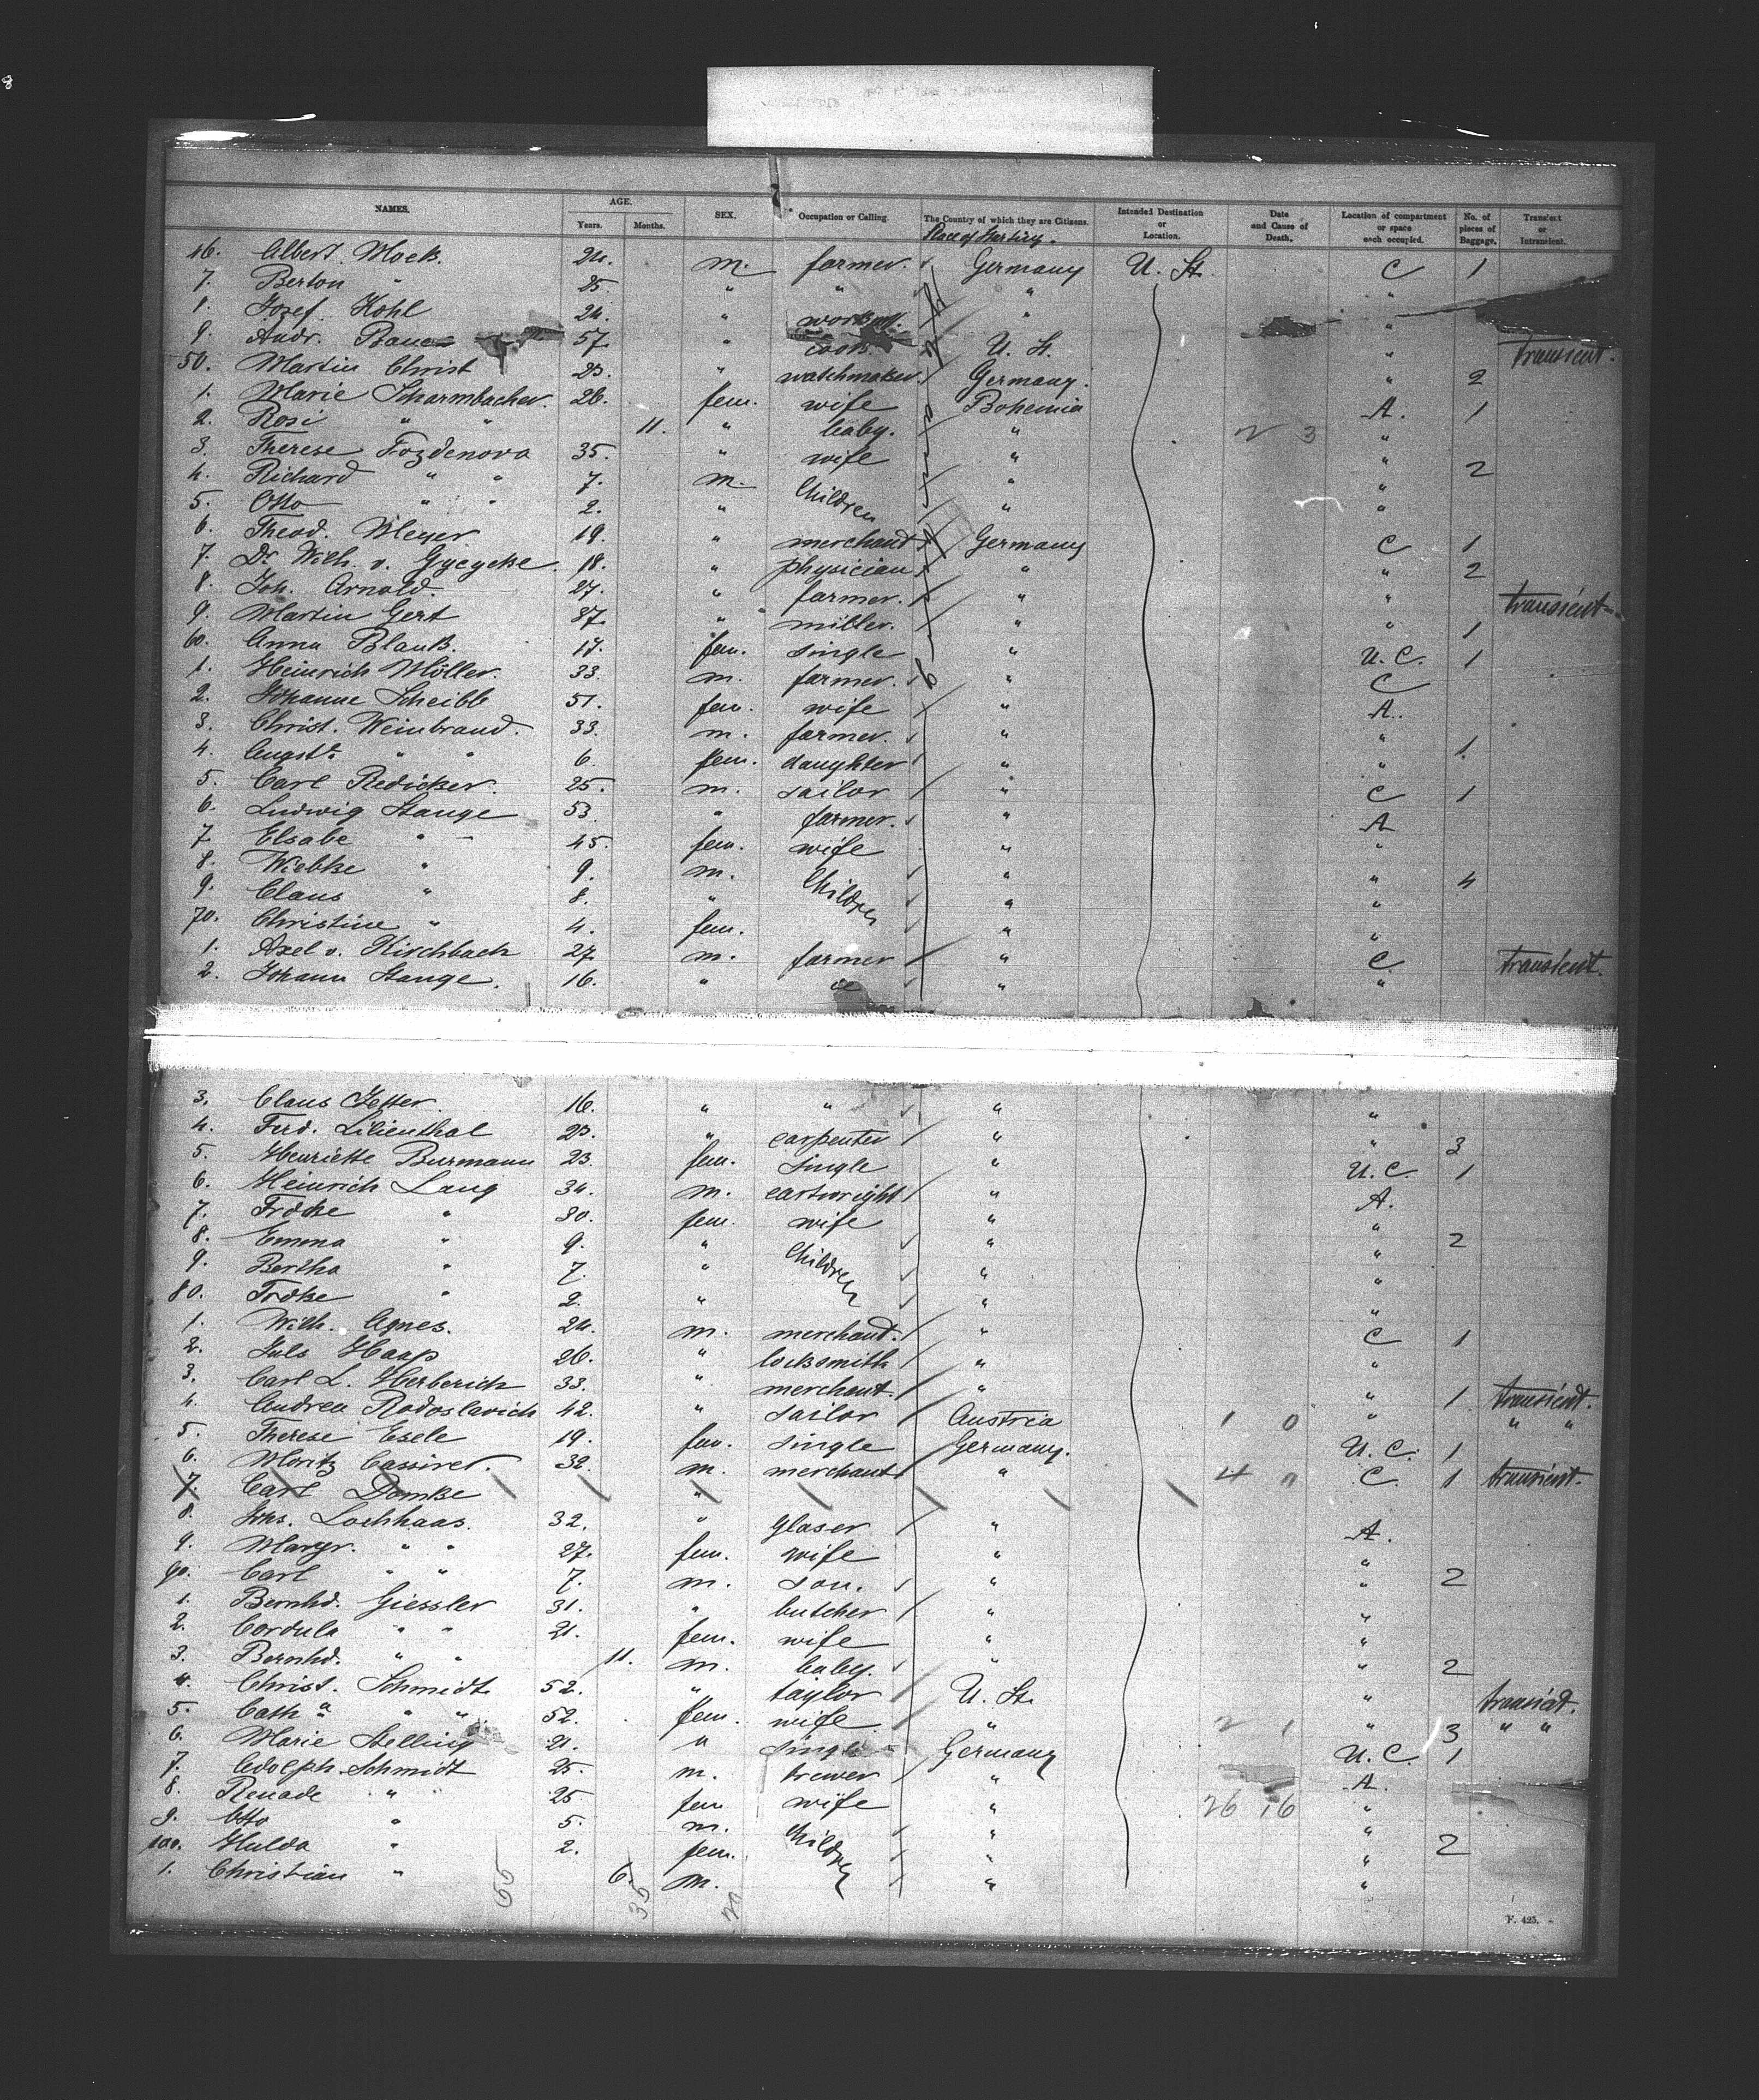 NAMES. AGE. Years. Months. SEX. Occupation or Calling. The Country of which they are Citizens. Intended Destination or Location. Date and Cause of Death. Location of compartment or space each occupied. No. of pieces of Baggage. Transient or Intransient.
Place of Starting.
46. Albert Mock. 24. m. farmer. Germany U. St. C 1
7. Berton " 25. " " " "
8. Josef Kohl 24. " workm. " "
9. Andr. Bauer 57 " cook. U. St. " transient.
50. Martin Christ 23. " watchmaker. Germany. " 2
1. Marie Scharmbacher. 26. fem. wife Bohemia A. 1
2. Rosi " " 11. " baby. " 2 3 "
3. Therese Fozdenova 35. " wife " " 2
4. Richard " " 7. m. Children " "
5. Otto " " 2. " " "
6. Theod. Meyer 19. " merchant Germany C 1
7. Dr. Wilh. v. Gycycke. 18. " physician " " 2
8. Joh. Arnold. 27. " farmer. " " transient.
9. Martin Gert 37. " miller. " " 1
60. Anna Blank. 17. fem. single " U. C. 1
1. Heinrich Möller. 33. m. farmer. " C
2. Johanne Scheibb 51. fem. wife " A.
3. Christ. Weinbrand. 33. m. farmer. " " 1.
4. Augste. " " 6. fem. daughter " "
5. Carl Redicker. 25. m. sailor " C 1
6. Ludwig Stange 53. " farmer. " A
7 Elsabe " 45. fem. wife " "
8. Wiebke " 9. m. Children " " 4
9. Claus " 8. " " "
70. Christine " 4. fem. " "
1. Axel v. Kirchbach 27 m. farmer " C. transient.
2. Johann Stange. 16. " " "
3. Claus Jetter. 16. " " " "
4. Ferd. Lilienthal 23. " carpenter " " 3
5. Henriette Burmann 23. fem. single " U. C. 1
6. Heinrich Lang 34. m. cartwright " A.
7. Frdke " 30. fem. wife " "
8. Emma " 9. " Children " " 2
9. Bertha " 7. " " "
80. Frdke " 2. " " "
1. Wilh. Agnes. 24. m. merchant. " C 1
2. Juls Haap 26. " locksmith " "
3. Carl L. Herberich 33. " merchant. " " 1 transient.
4. Andrea Radoslavich 42. " sailor Austria 1 0 " " "
5. Therese Esele 19. fem. single Germany. U. C. 1
6. Moritz Cassirer. 32. m. merchant " 4 0 C. 1 transient.
7. Carl Domke "
8. Johs. Lochhaas. 32. " glaser " A.
9. Margr. " " 27. fem. wife " "
90. Carl " " 7. m. son. " " 2
1. Bernhd. Giessler 31. " butcher " "
2. Cordula " " 21. fem. wife " "
3. Bernhd. " " 11. m. baby. " " 2
4. Christ. Schmidt 52. " taylor U. St. " transient.
5. Cath " " 52. fem. wife " 2 1 " 3 " "
6. Marie Stelling 21. " single Germany U. C. 1
7. Adolph Schmidt 25. m. brewer " A.
8. Renade " 25 fem wife " 26 16 "
9. Otto " 5. m. Children " "
100. Hulda " 2. fem. " " 2
1. Christian " 6. m. " "
F. 425.